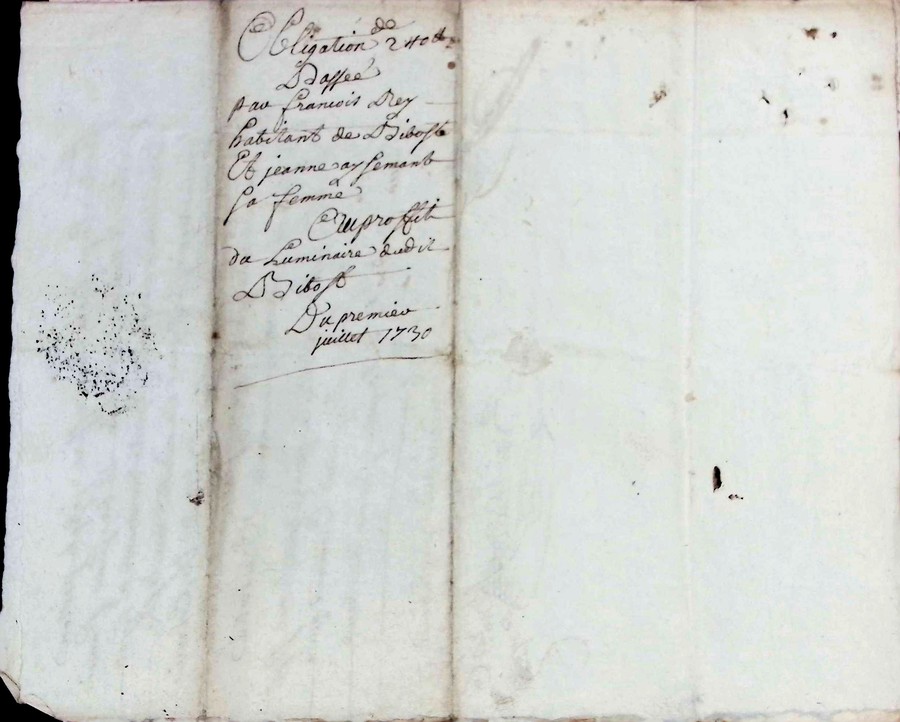 Obligation de 240lt
Passeé
par francois Rey
habitant de Bibost
Et jeanne
sa femme
Au proffit
du Luminaire dudit
Bibost
Du premier
juillet 1730